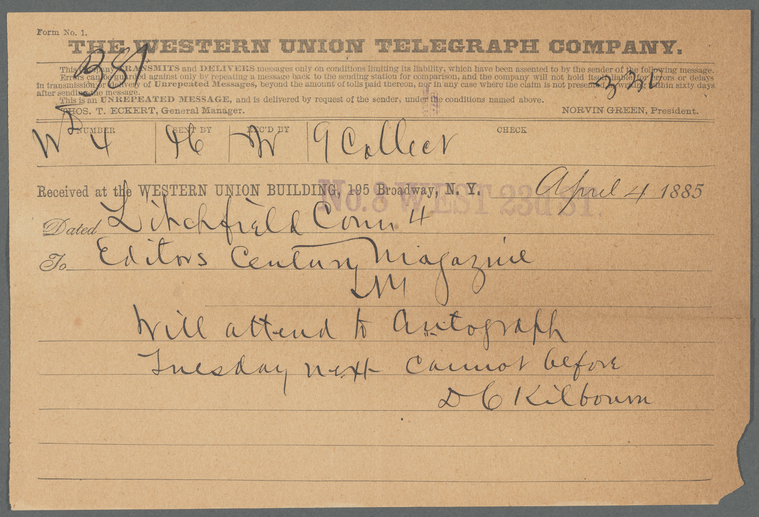 Form No. 1.
THE WESTERN UNION TELEGRAPH COMPANY.
381
This Company TRANSMITS and DELIVERS messages only on conditions limiting its liability, which have been assented to by the sender of the following message.
Errors can be guarded against only by repeating a message back to the sending station for comparison, and the company will not hold itself liable for errors or delays
in transmission or delivery of Unrepeated Messages, beyond the amount of tolls paid thereon, nor in any case where the claim is not presented in writing within sixty days
after sending the message.
This is an UNREPEATED MESSAGE, and is delivered by request of the sender, under the conditions named above.
THOS. T. ECKERT, General Manager. NORVIN GREEN, President.
NUMBER SENT BY REC'D BY CHECK
4 9 Collect
Received at the WESTERN UNION BUILDING, 195 Broadway, N. Y. April 4 1885
No. 8 WEST 23d ST.
Dated Litchfield Conn 4
To Editors Century Magazine
Will attend to Autograph
Tuesday next cannot before
D C Kilbourn